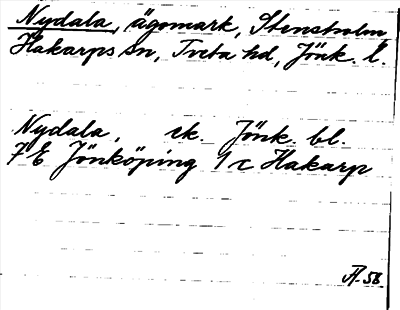 Nydala, ägomark, Stensholm
Hakarps sn, Tveta hd, Jönk. l.
Nydala, ek Jönk. bl.
7 E Jönköping 1 c Hakarp
Ä-56